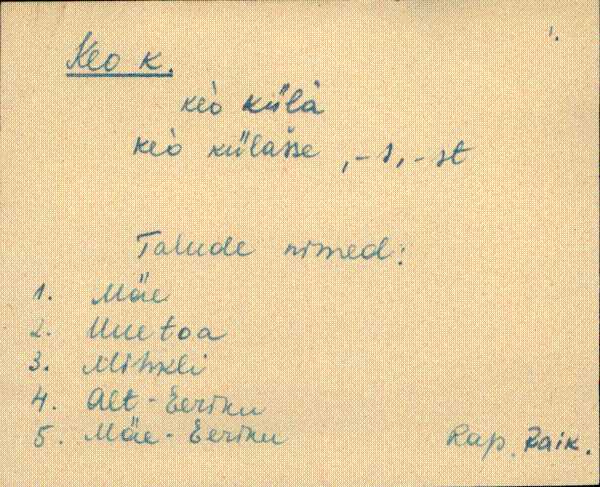 1.
Keo k.
keò külà
keò külàsse, -s, -st
Talude nimed:
1. Mäe
2. Uuetoa
3. Mihkli
4. Alt-Eeriku
5. Mäe-Eeriku
Rap. Raik.